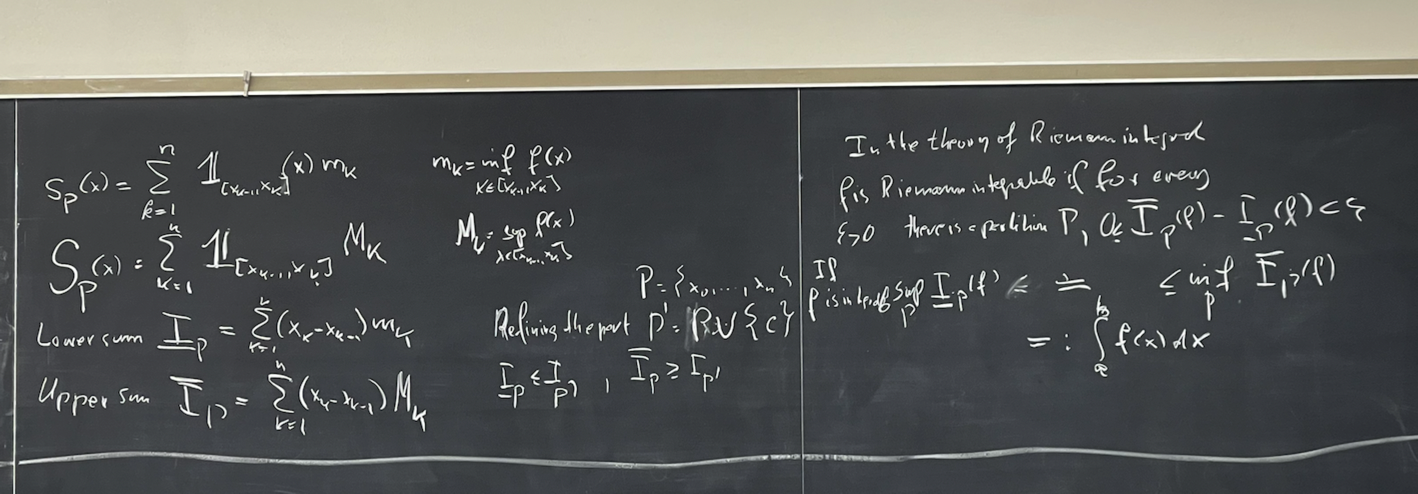 s_p(x) = \sum_{k=1}^{n} 𝟙_{[x_{k-1}, x_k]}(x) m_k
m_k = inf_{x∈[x_{k-1}, x_k]} f(x)
S_p(x) = \sum_{k=1}^{n} 𝟙_{[x_{k-1}, x_k]} M_k
M_k = sup_{x∈[x_{k-1}, x_k]} f(x)
Lower sum \underline{I}_p = \sum_{k=1}^{n} (x_k - x_{k-1}) m_k
Upper sum \overline{I}_p = \sum_{k=1}^{n} (x_k - x_{k-1}) M_k
P = {x_0, ..., x_n}
Refining the part P' = P ∪ {c}
\underline{I}_p ≤ \underline{I}_{p'} , \overline{I}_p ≥ \overline{I}_{p'}
In the theory of Riemann integral
f is Riemann integrable if for every
ε>0 there is a partition P, 0 ≤ \overline{I}_p(f) - \underline{I}_p(f) < ε
If
f is integ sup_p \underline{I}_p(f) ≤ = ≤ inf_p \overline{I}_p(f)
=: \int_a^b f(x) dx